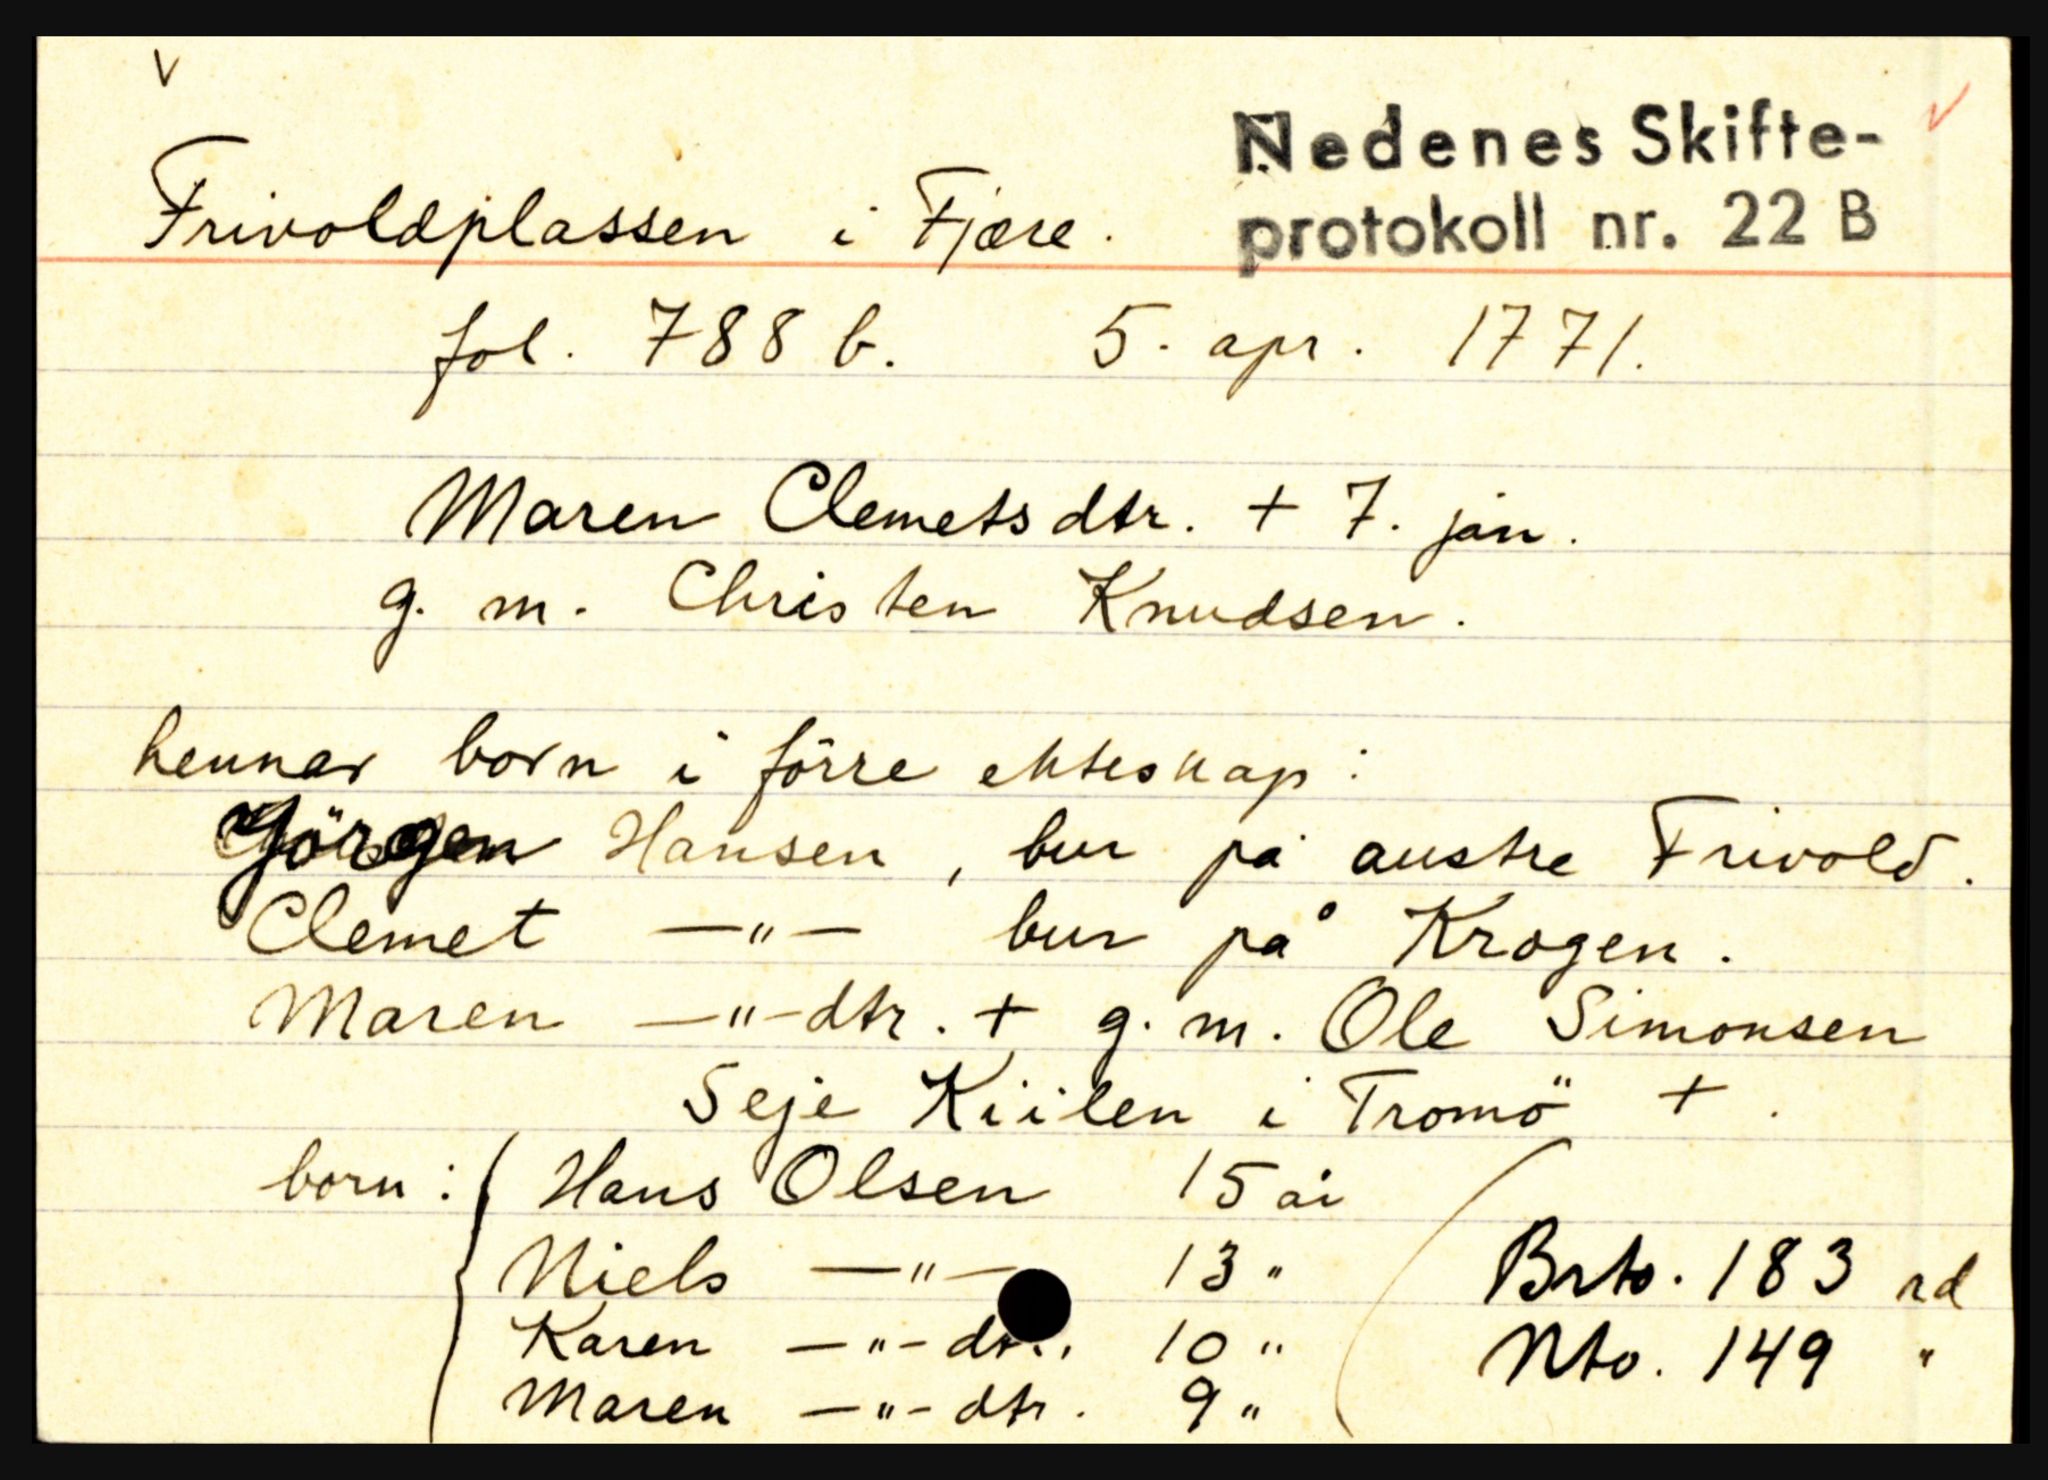 Nedenes Skifte-
protokoll nr. 22 B
Frivoldplassen i Fjære.
fol. 788 b. 5. apr. 1771.
Maren Clemetsdtr. + 7. jan.
g. m. Christen Knudsen.
hennar born i förre ekteskap:
Jörgen Hansen, bur på austre Frivold.
Clemet —"— bur på Krogen.
Maren —"—dtr. + g. m. Ole Simonsen
Seje Kiilen i Tromö +.
born: Hans Olsen 15 år
Niels —"— 13 "
Karen —"—dtr. 10 "
Maren —"—dtr. 9 "
Brto. 183 rd
Nto. 149 "